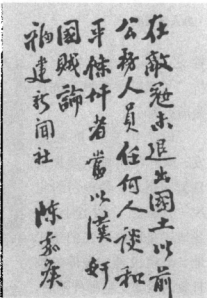 在敵寇未退出國土以前
公務人員任何人談和
平條件者當以漢奸
國賊論
福建新聞社
陳嘉庚